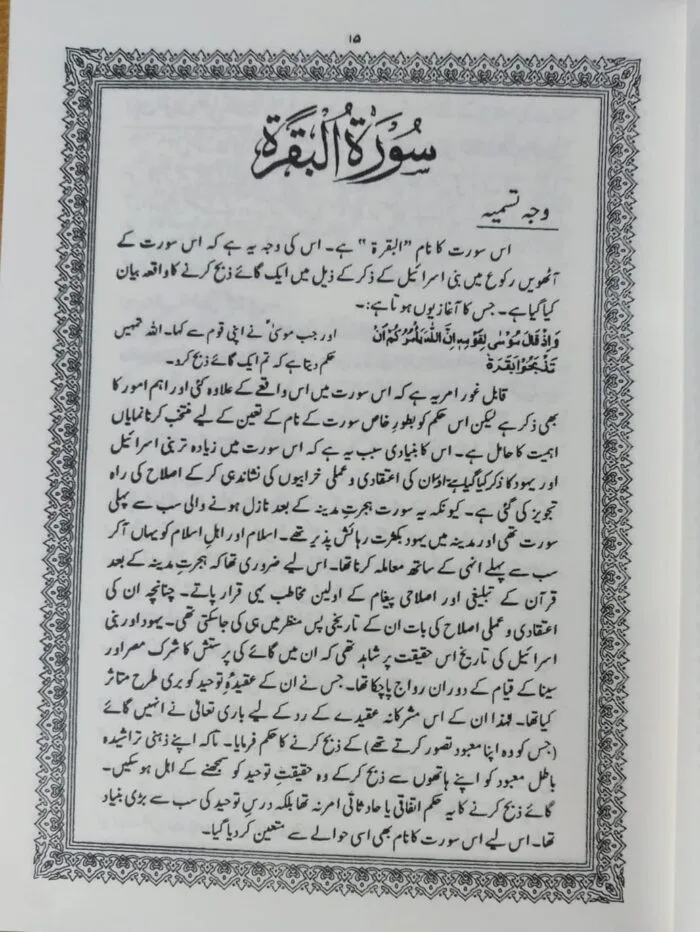 ۱۵
سُوْرَةُ الْبَقَرَة
وجہ تسمیہ
اس سورت کا نام "البقرۃ" ہے۔ اس کی وجہ یہ ہے کہ اس سورت کے
آٹھویں رکوع میں بنی اسرائیل کے ذکر کے ذیل میں ایک گائے ذبح کرنے کا واقعہ بیان
کیا گیا ہے۔ جس کا آغاز یوں ہوتا ہے:۔
وَاِذْ قَالَ مُوْسٰی لِقَوْمِہٖ اِنَّ اللّٰہَ یَاْمُرُکُمْ اَنْ
تَذْبَحُوْا بَقَرَۃً
اور جب موسیٰؑ نے اپنی قوم سے کہا۔ اللہ تمہیں
حکم دیتا ہے کہ تم ایک گائے ذبح کرو۔
قابل غور امر یہ ہے کہ اس سورت میں اس واقعے کے علاوہ کئی اور اہم امور کا
بھی ذکر ہے لیکن اس حکم کو بطورِ خاص سورت کے نام کے تعین کے لیے منتخب کرنا نمایاں
اہمیت کا حامل ہے۔ اس کا بنیادی سبب یہ ہے کہ اس سورت میں زیادہ تر بنی اسرائیل
اور یہود کا ذکر کیا گیا ہے اور ان کی اعتقادی و عملی خرابیوں کی نشاندہی کر کے اصلاح کی راہ
تجویز کی گئی ہے۔ کیونکہ یہ سورت ہجرتِ مدینہ کے بعد نازل ہونے والی سب سے پہلی
سورت تھی اور مدینہ میں یہود بکثرت رہائش پذیر تھے۔ اسلام اور اہلِ اسلام کو یہاں آ کر
سب سے پہلے انہی کے ساتھ معاملہ کرنا تھا۔ اس لیے ضروری تھا کہ ہجرتِ مدینہ کے بعد
قرآن کے تبلیغی اور اصلاحی پیغام کے اولین مخاطب یہی قرار پاتے۔ چنانچہ ان کی
اعتقادی و عملی اصلاح کی بات ان کے تاریخی پس منظر میں ہی کی جا سکتی تھی۔ یہود اور بنی
اسرائیل کی تاریخ اس حقیقت پر شاہد تھی کہ ان میں گائے کی پرستش کا شرک مصر اور
سینا کے قیام کے دوران رواج پا چکا تھا۔ جس نے ان کے عقیدۂ توحید کو بری طرح متاثر
کیا تھا۔ لہٰذا ان کے اس مشرکانہ عقیدے کے رد کے لیے باری تعالیٰ نے انہیں گائے
(جس کو وہ اپنا معبود تصور کرتے تھے) کے ذبح کرنے کا حکم فرمایا۔ تاکہ اپنے ذہنی تراشیدہ
باطل معبود کو اپنے ہاتھوں سے ذبح کر کے وہ حقیقتِ توحید کو سمجھنے کے اہل ہو سکیں۔
گائے ذبح کرنے کا یہ حکم اتفاقی یا حادثاتی امر نہ تھا بلکہ درسِ توحید کی سب سے بڑی بنیاد
تھا۔ اس لیے اس سورت کا نام بھی اسی حوالے سے متعین کر دیا گیا۔